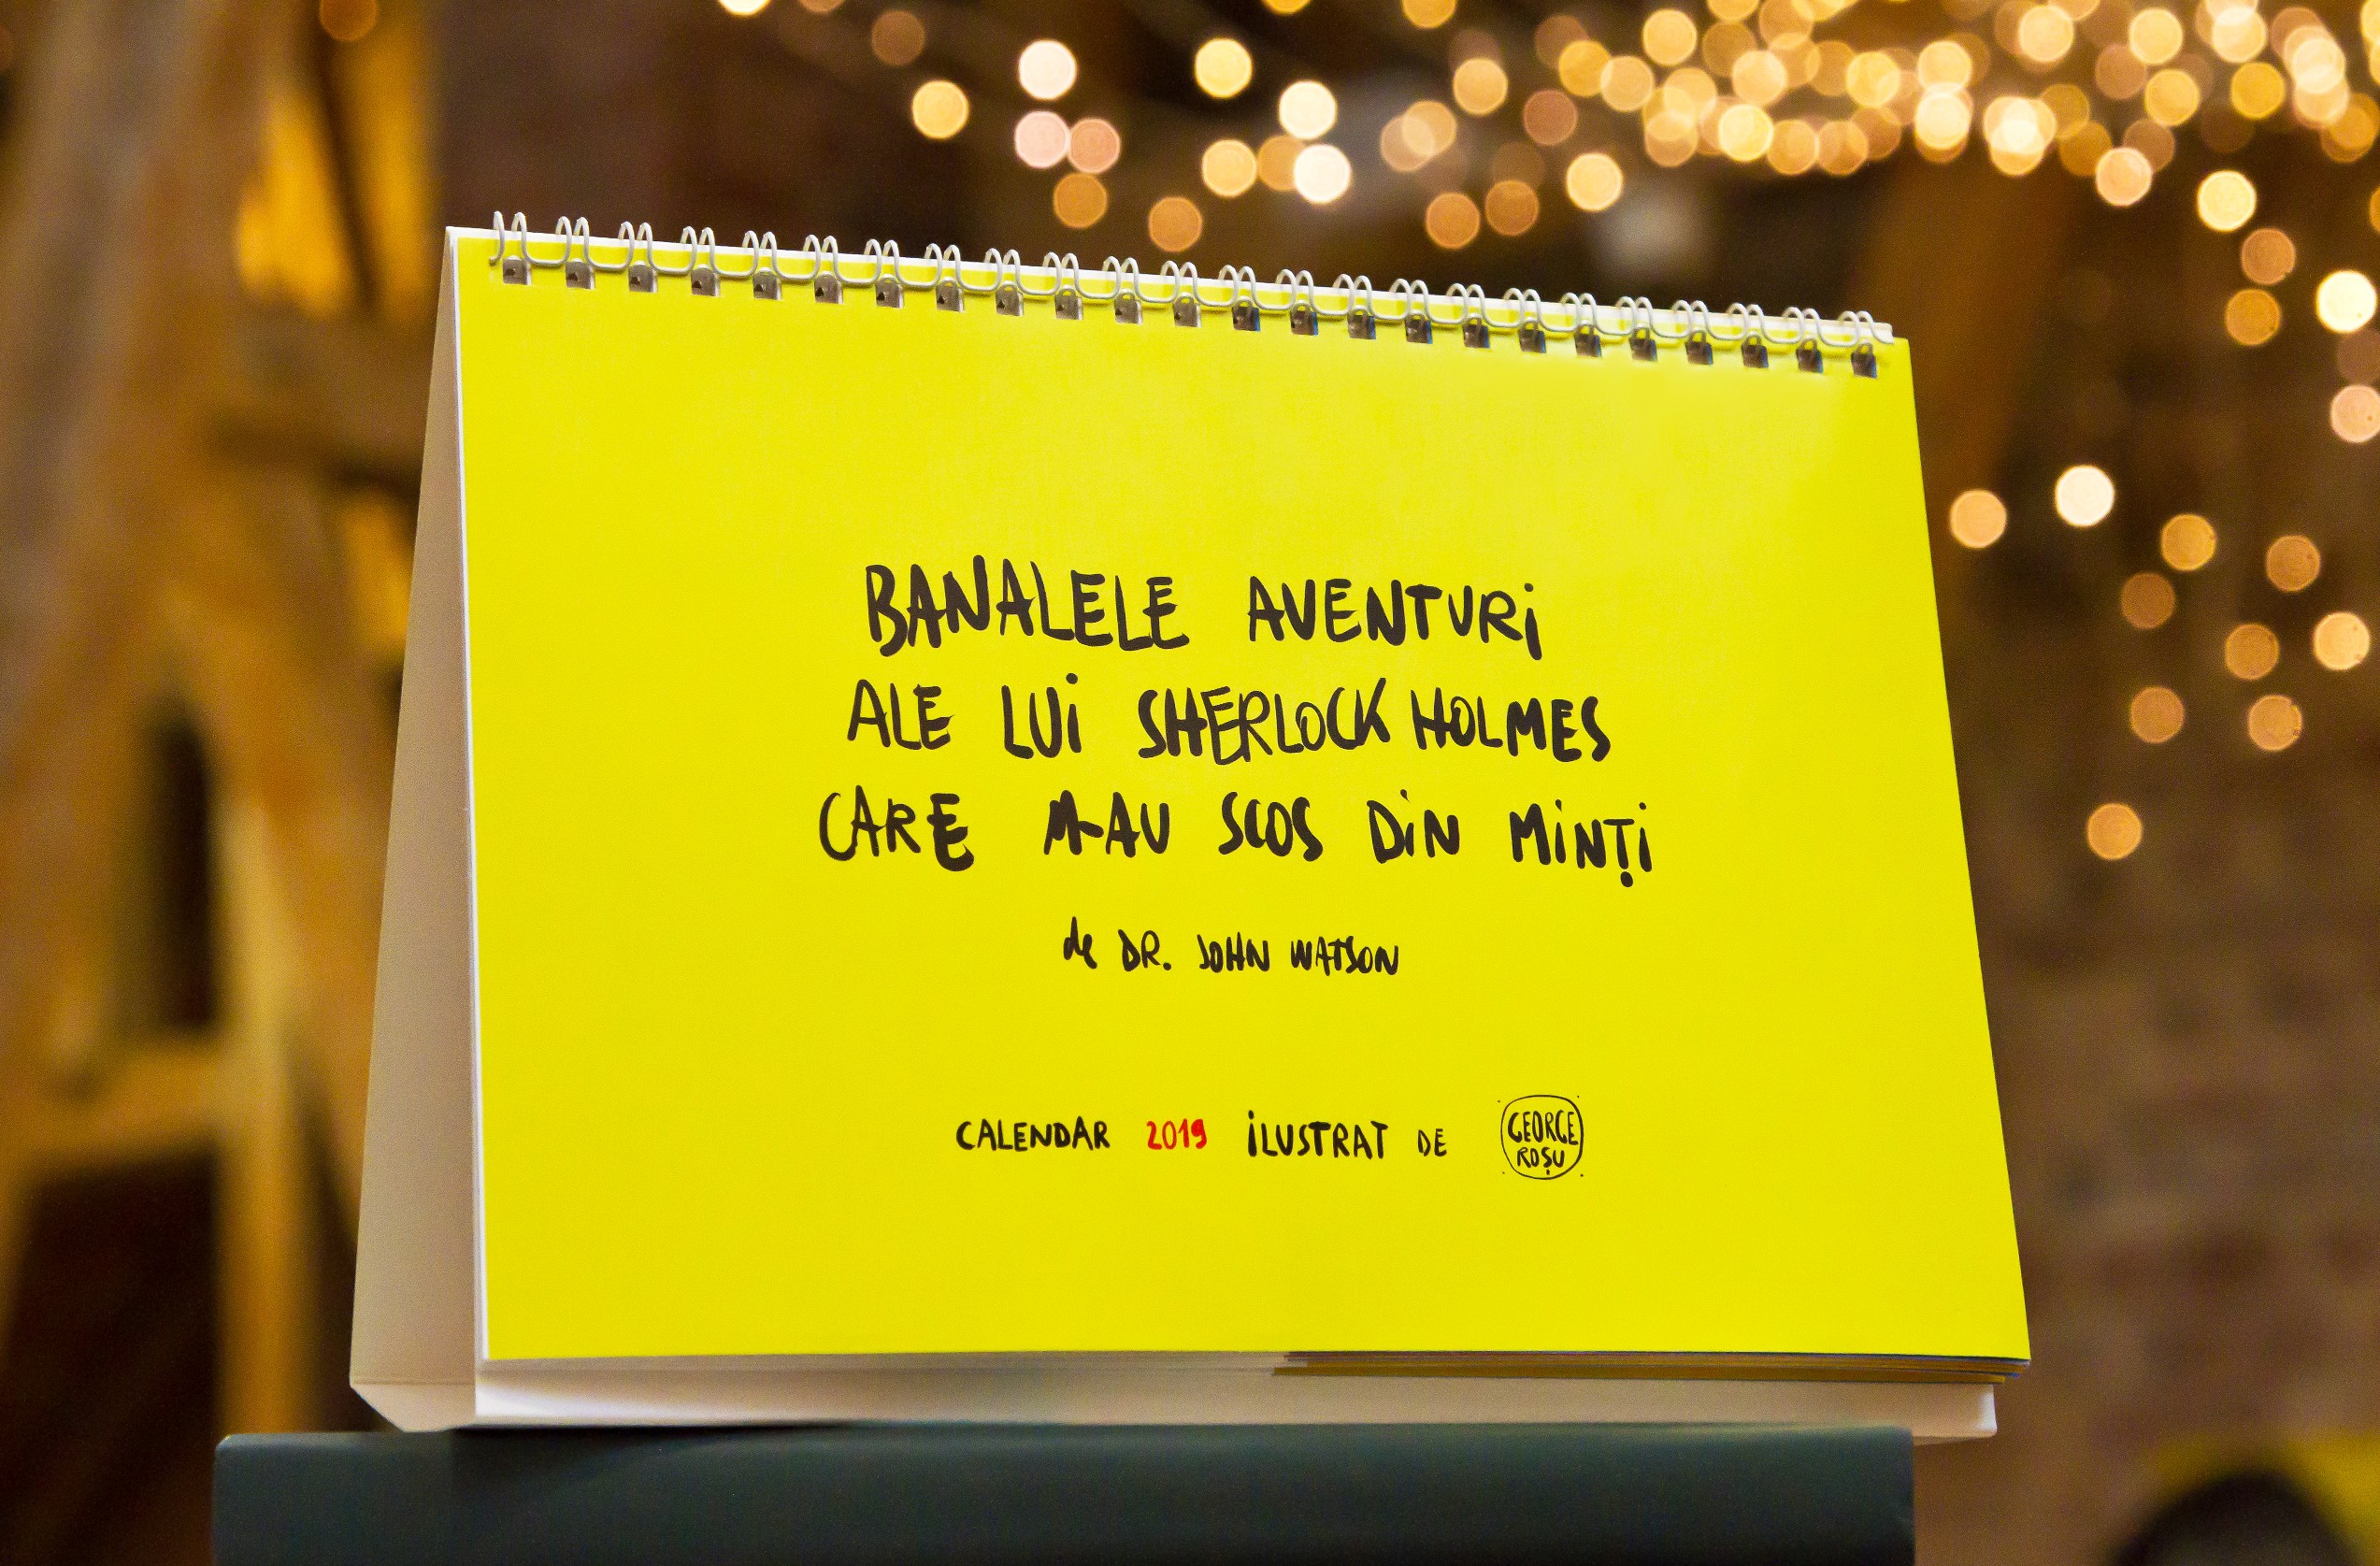 BANALELE AVENTURi
ALE LUi SHERLOCK HOLMES
CARE M-AU SCOS DiN MiNȚi
de DR. JOHN WATSON
CALENDAR 2019 iLUSTRAT DE GEORGE
ROȘU